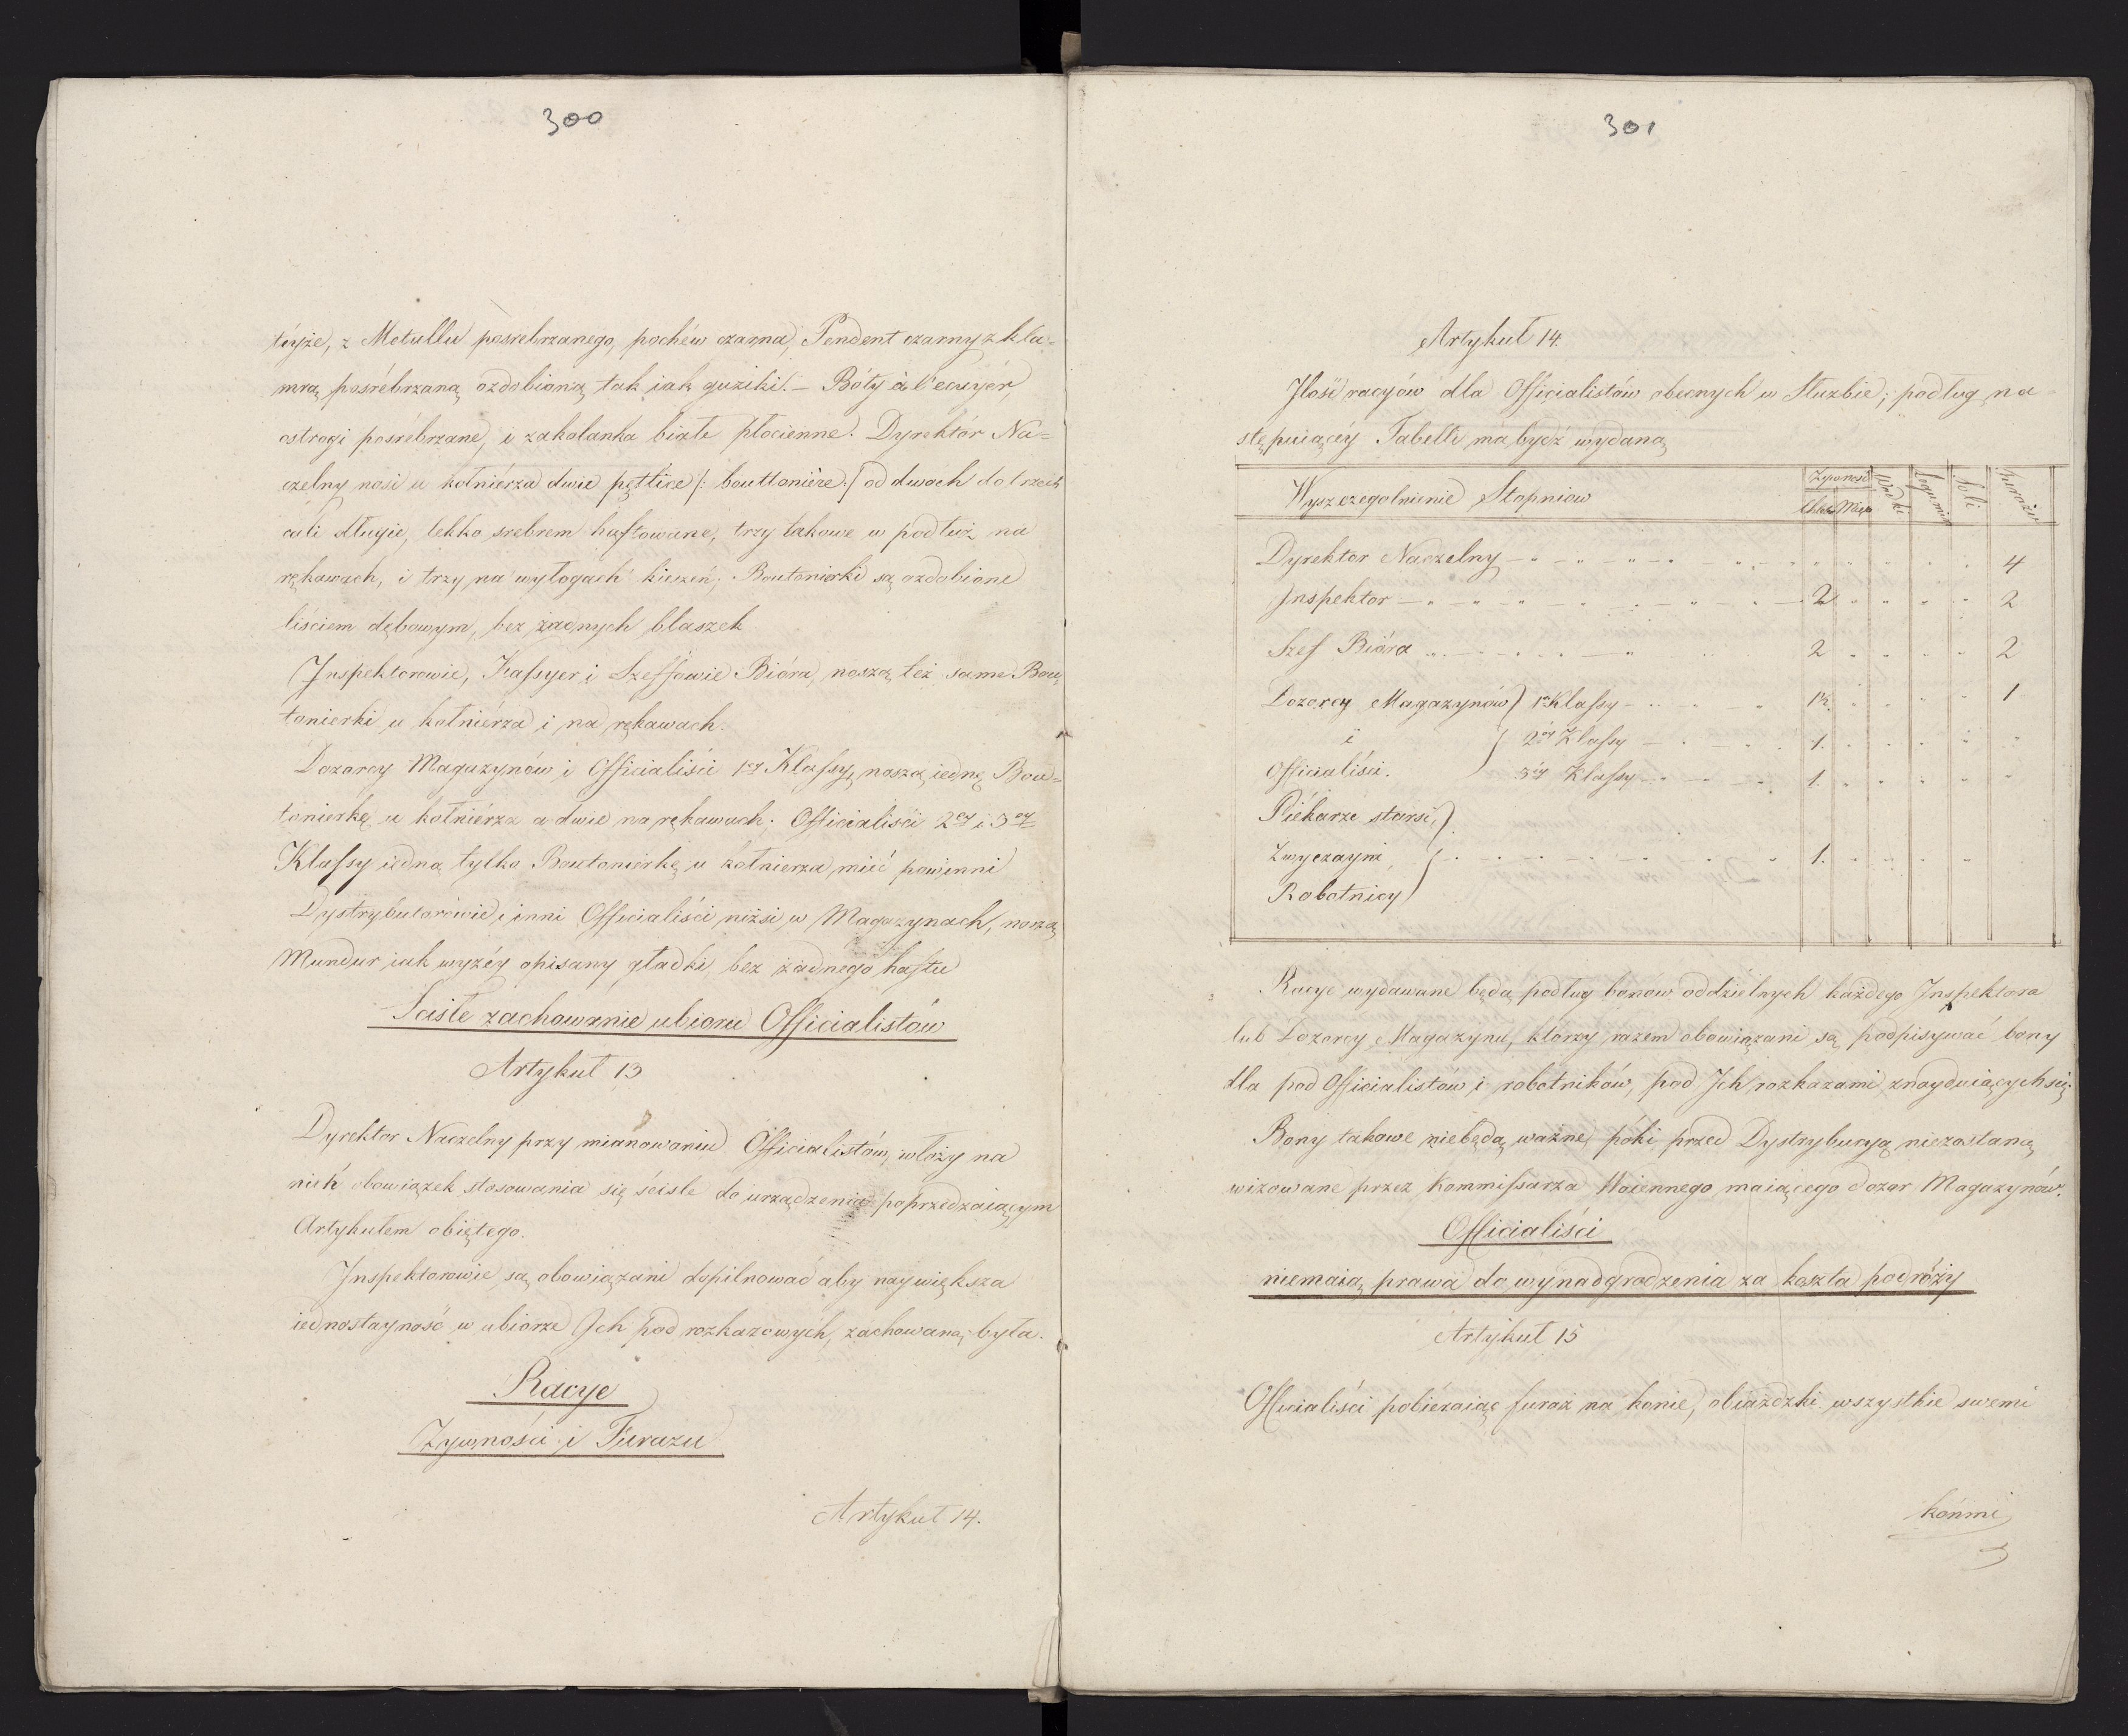 300
téyże, z Metallu posrebrzanego, pochéw czarna, Pendent czarny z kla-
mrą posrébrzaną ozdobioną tak iak guziki. — Bóty à l'ecuyér,
ostrogi posrébrzane, i zakolanka białe płócienne. Dyrektór Na=
czelny nosi u kołniérza dwie pętlice /: bouttonière :/ od dwoch do trzech
cali długie, lekko srebrem haftowane, trzy takowe w podłuż na
rękawach, i trzy na wyłogach kieszeń; Boutonierki są ozdobione
liściem dębowym, bez żadnych blaszek
Inspektorowie, Kassyer i Szeffowie Bióra, noszą też same Bou,
tonierki u kołniérza i na rękawach.
Dozorcy Magazynów i Officialiści 1éy Klassy, noszą iednę Bou=
tonierkę u kołniérza a dwie na rękawach; Officialiśći 2éy i 3éy
Klassy iedną tylko Boutonierkę u kołnierza mieć powinni
Dystrybutorówie i inni Officialiści niżsi w Magazynach, noszą
Mundur iak wyżéy opisany gładki bez żadnego haftu
Sciśłe zachowanie ubioru Officialistów
Artykuł 13
Dyrektor Naczelny przy mianowaniu Officialistów, włoży na
nich obowiązek stosowania się ściśle do urządzenia poprzedzaiącym
Artykułem obiętego.
Inspektorowie są obowiązani dopilnować aby naywiększa
iednostayność w ubiorze Ich pod rozkazowych, zachowaną była.
Racye
Żywności i Furażu
Artykuł 14.
301
Artykuł 14.
Ilość racyów dla Officialistów obecnych w Służbie; podług na
stępuiącéy Tabelli ma bydź wydaną
Wyszczegolnienie Stopniow Żywność Chleb Mięs Wódki Legumin Soli Furażu
Dyrektor Naczelny 4
Inspektor 2 2
Szef Bióra 2 2
Dozorcy Magazynów 1éy Klassy 1½ 1
i 2éy Klassy 1.
Officialiści. 3éy Klassy 1.
Piékarze starsi,
Zwyczayni, 1.
Robotnicy
Racye wydawane będą podług bonow oddzielnych każdego Inspektora
lub Dozorcy Magazynu, ktorzy razem obowiązani są podpisywać bony
dla pod Officialistów i robotników, pod Ich rozkazami znayduiących się.
Bony takowe niebędą ważne, póki przed Dystrybucyą niezostaną
wizowane przez Kommissarza Woiennego maiącego dozor Magazynów.
Officialiści
niemaią prawa do wynadgrodzenia za koszta podróży
Artykuł 15
Officialiści pobiéraiąc furaż na konie, obiażdzki wszystkie swemi
końmi